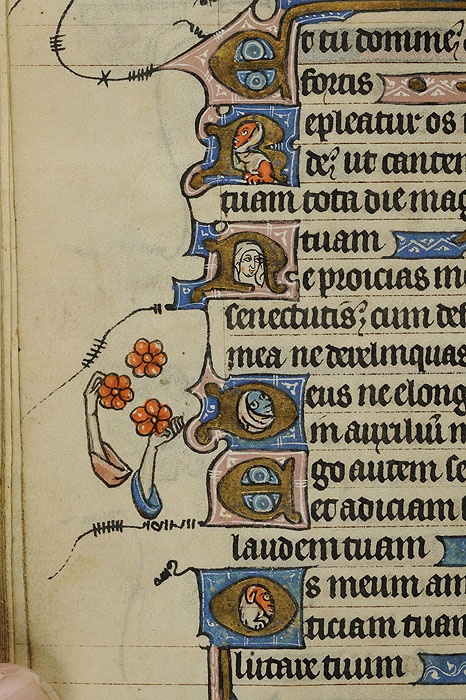 Et tu domine
fortis
Repleatur os
de ut cantem
tuam tota die mag
tuam
Ne proicias m
senectutis cum def
mea ne derelinquas
Deus ne elong
in auxiliū m
Ego autem se
et adiciam
laudem tuam
Os meum an
ticiam tuam
lutare tuum